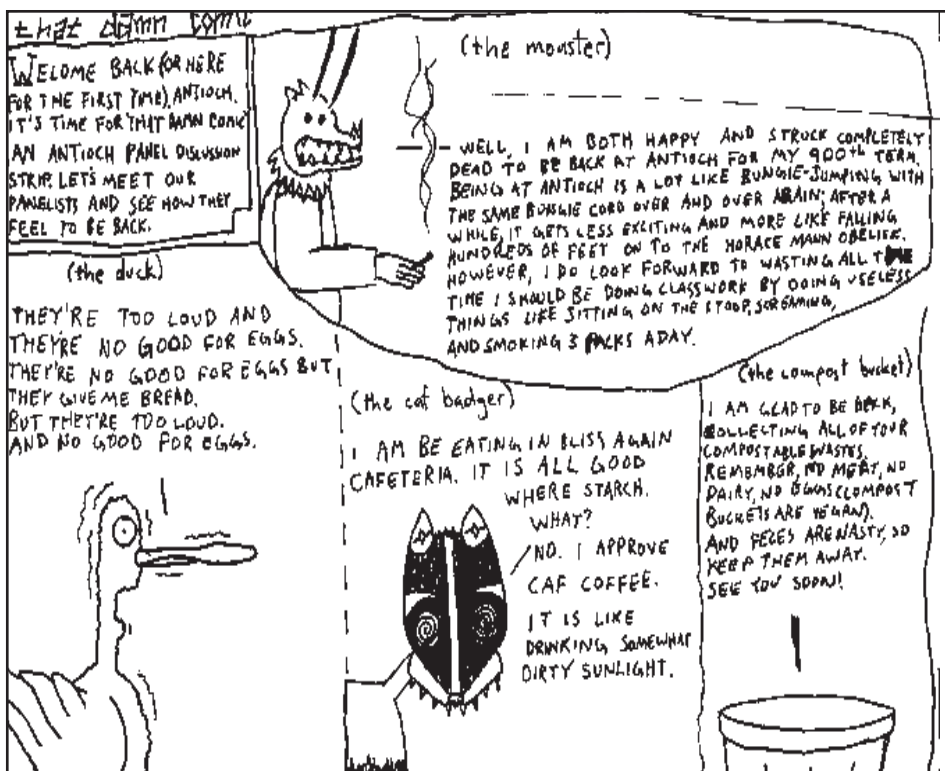 that damn comic
WELOME BACK (OR HERE
FOR THE FIRST TIME), ANTIOCH.
IT'S TIME FOR THAT DAMN COMIC
AN ANTIOCH PANEL DISCUSSION
STRIP. LET'S MEET OUR
PANELISTS AND SEE HOW THEY
FEEL TO BE BACK.
(the monster)
WELL, I AM BOTH HAPPY AND STRUCK COMPLETELY
DEAD TO BE BACK AT ANTIOCH FOR MY 900th TERM.
BEING AT ANTIOCH IS A LOT LIKE BUNGIE-JUMPING WITH
THE SAME BUNGIE CORD OVER AND OVER AGAIN; AFTER A
WHILE, IT GETS LESS EXCITING AND MORE LIKE FALLING
HUNDREDS OF FEET ON TO THE HORACE MANN OBELISK.
HOWEVER, I DO LOOK FORWARD TO WASTING ALL THE
TIME I SHOULD BE DOING CLASSWORK BY DOING USELESS
THINGS LIKE SITTING ON THE STOOP, SCREAMING,
AND SMOKING 3 PACKS A DAY.
(the duck)
THEY'RE TOO LOUD AND
THEY'RE NO GOOD FOR EGGS.
THEY'RE NO GOOD FOR EGGS BUT
THEY GIVE ME BREAD.
BUT THEY'RE TOO LOUD.
AND NO GOOD FOR EGGS.
(the cat badger)
I AM BE EATING IN BLISS AGAIN
CAFETERIA. IT IS ALL GOOD
WHERE STARCH.
WHAT?
NO. I APPROVE
CAF COFFEE.
IT IS LIKE
DRINKING SOMEWHAT
DIRTY SUNLIGHT.
(the compost bucket)
I AM GLAD TO BE BACK,
COLLECTING ALL OF YOUR
COMPOSTABLE WASTES.
REMEMBER, NO MEAT, NO
DAIRY, NO EGGS (COMPOST
BUCKETS ARE VEGAN).
AND FECES ARE NASTY, SO
KEEP THEM AWAY.
SEE YOU SOON!